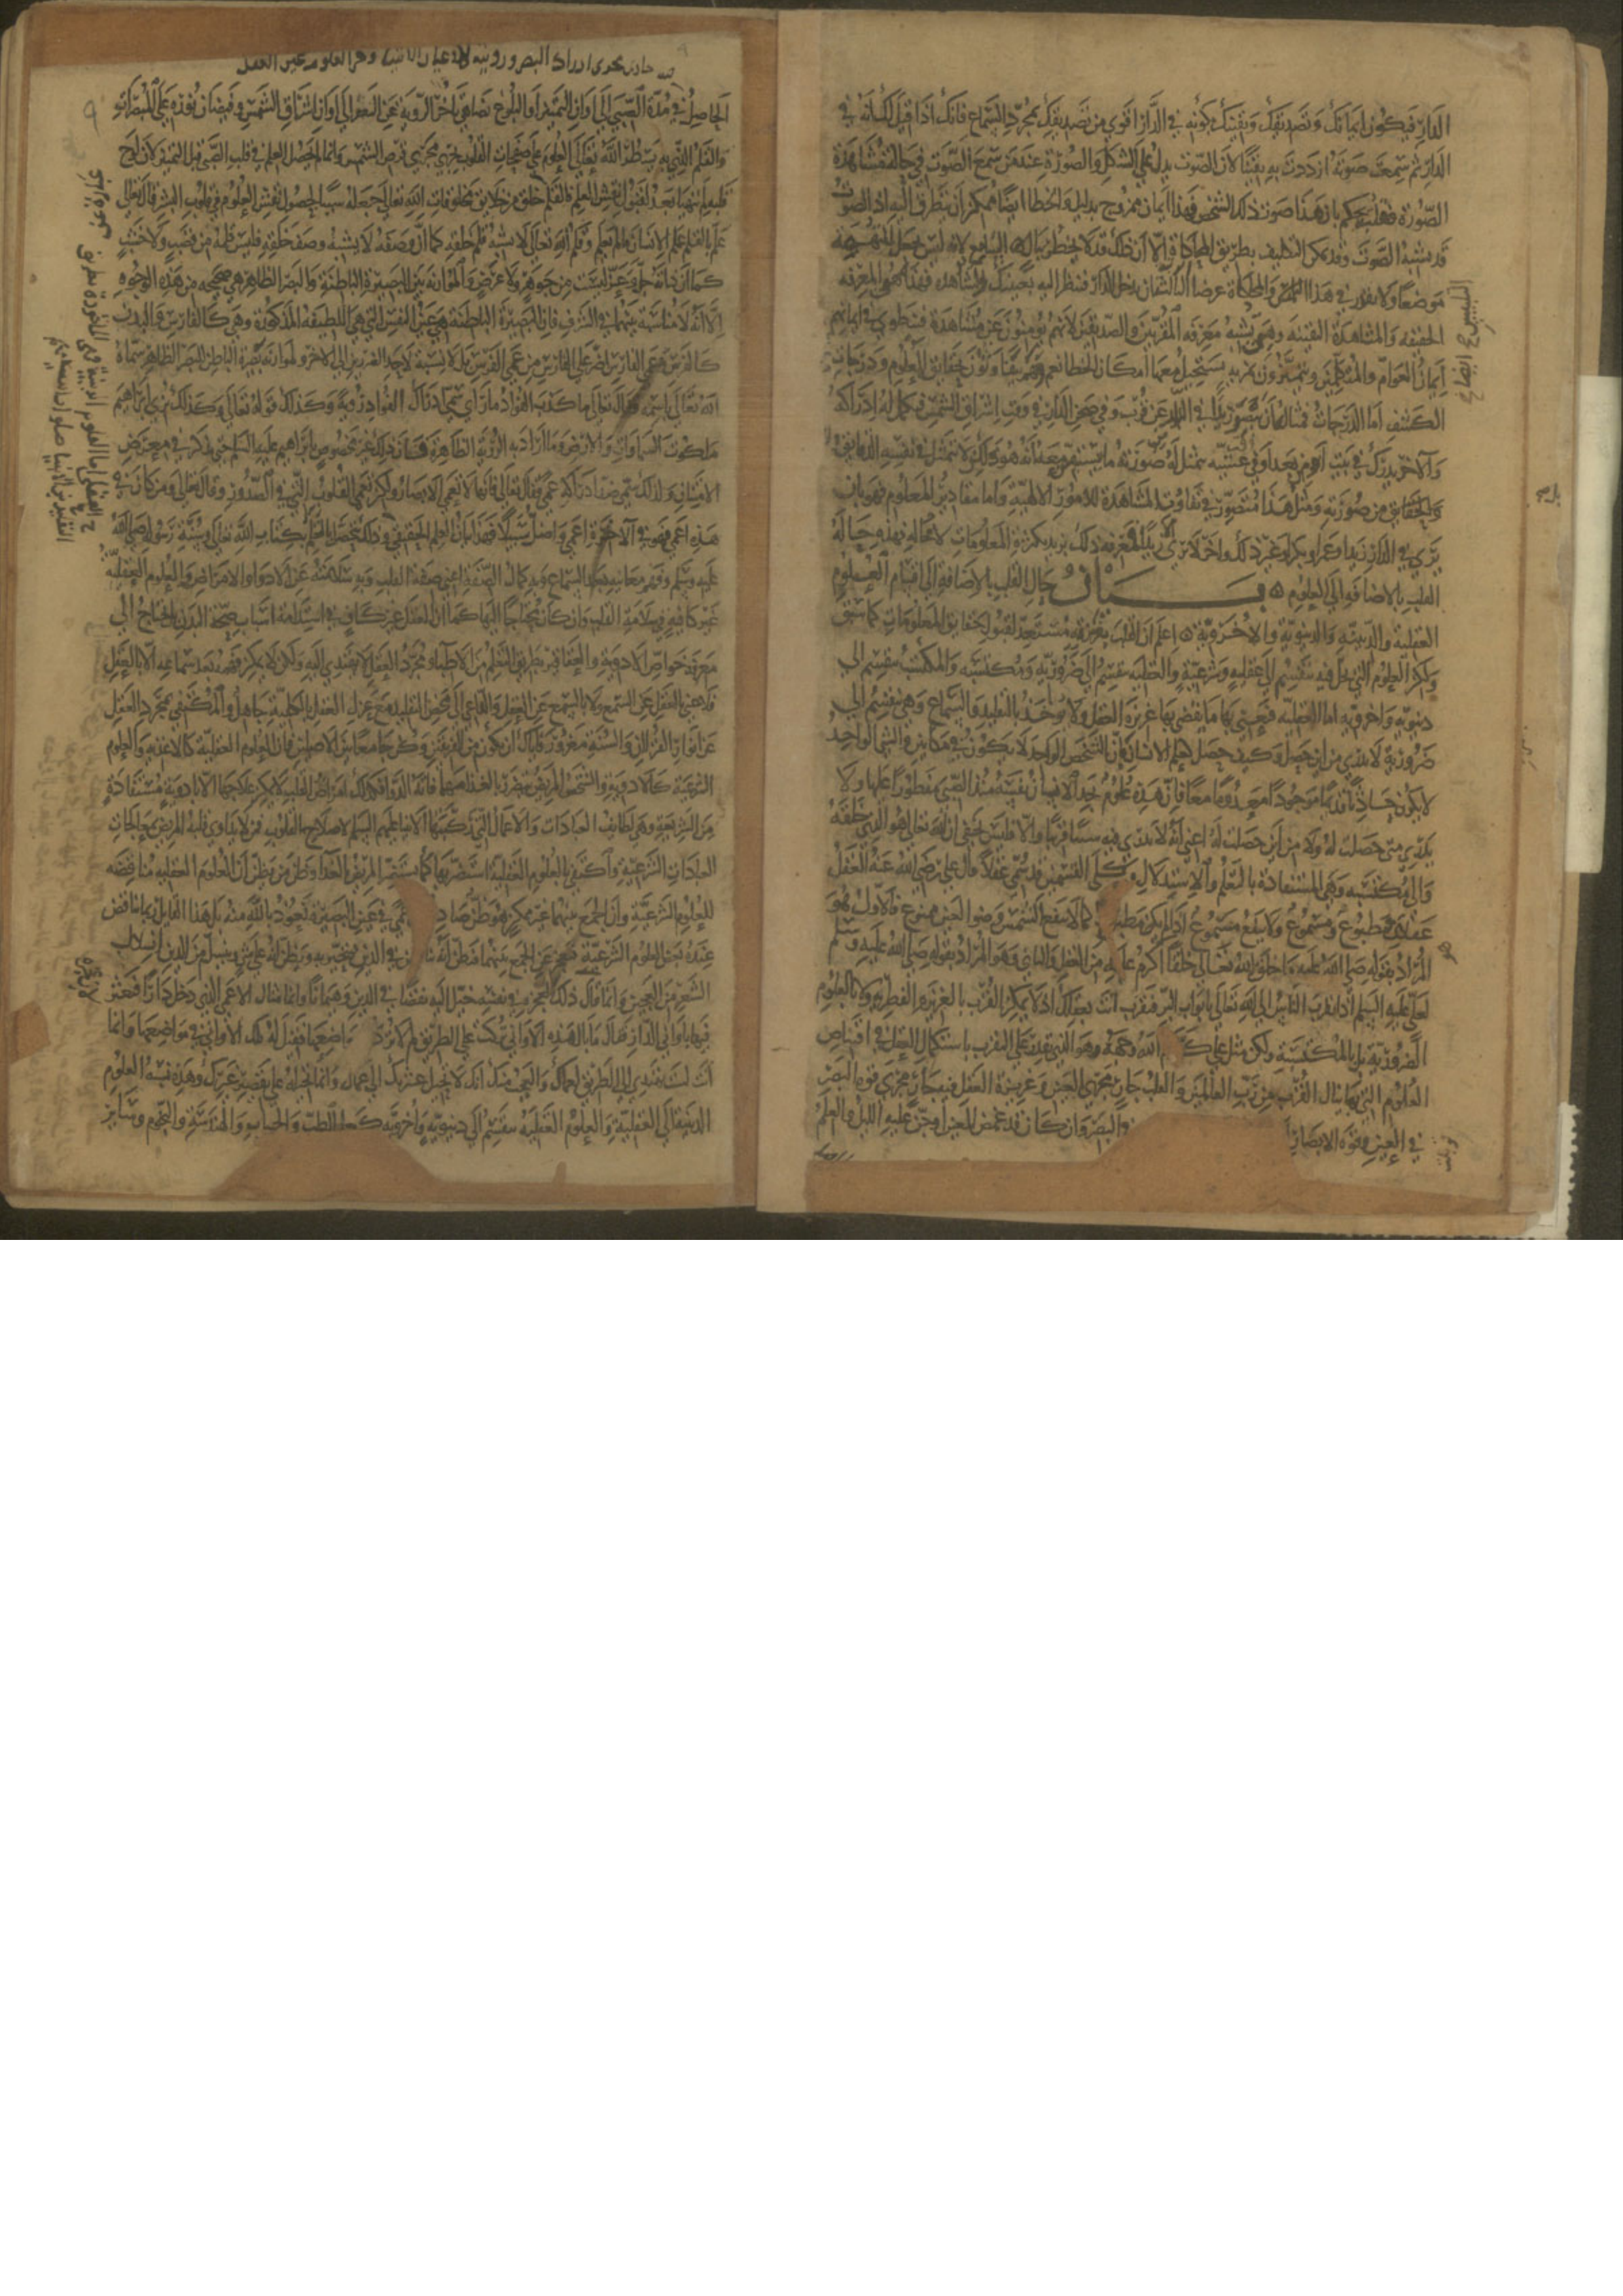 الدار فيكون ايمانك وتصديقك ويقينك بكونه في الدار اقوى من تصديقك بمجرد السماع فانك اذا قيل لك انه في
الدار ثم سمعت صوته ازددت به يقينا لان الصوت يدل على الشكل والصورة عند من سمع الصوت في حال مشاهدة
الصورة فقلبه يحكم بان هذا صوت ذلك الشخص فهذا ايمان ممزوج بدليل والخطا ايضا ممكن ان يتطرق اليه اذ الصوت
قد يشبه الصوت وقد يمكن التكليف بطريق المحاكاة الا ان ذلك قد لا يخطر ببال السامع لانه ليس يجعل للتهمة
موضعا ولا يقدر في هذا التلبيس والمحاكاة غرضا الثالثة ان يدخل الدار فينظر اليه بعينك وتشاهده فهذه هي المعرفة
الحقيقية والمشاهدة اليقينية وهي تشبه معرفة المقربين والصديقين لانهم يؤمنون عن مشاهدة فينطوي في ايمانهم
ايمان العوام والمتكلمين ويتميزون بمزية يستحيل معها امكان الخطا نعم وهم ايضا يتفاوتون بمقادير العلوم ودرجات
الكشف اما الدرجات فمثاله ان يبصر زيدا في الدار عن قرب وفي صحن الدار في وقت اشراق الشمس فيكمل له ادراكه
والاخر يدركه في بيت او من بعد او في عشية فيتمثل له صورته ما يستيقن معه انه هو ولكن لا يتمثل في نفسه الدقائق
والخفايا من صورته ومثل هذا متصور في تفاوت المشاهدة للامور الالهية واما مقادير المعلوم فهو بان
يرى في الدار زيدا وعمرا وبكرا وغير ذلك واخر لا يرى الا زيدا فمعرفة ذلك تزيد بكثرة المعلومات لا محالة فهذه حال
القلب بالاضافة الى العلوم بيان حال القلب بالاضافة الى اقسام العلوم
العقلية والدينية والدنيوية والاخروية اعلم ان القلب بغريزته مستعد لقبول حقايق المعلومات كما سبق
ولكن العلوم التي تحل فيه تنقسم الى عقلية وشرعية والعقلية تنقسم الى ضرورية ومكتسبة والمكتسبة تنقسم الى
دنيوية واخروية اما العقلية فنعني بها ما يقضي بها غريزة العقل ولا توخذ بالتقليد والسماع وهي تنقسم الى
ضرورية لا يدري من اين حصل وكيف حصل كعلم الانسان بان الشخص الواحد لا يكون في مكانين والشي الواحد
لا يكون حادثا قديما موجودا معدوما معا فان هذه علوم يجد الانسان نفسه منذ الصبي مفطورا عليها ولا
يدري متى حصلت له ولا من اين حصلت له اعني انه لا يدري فيه سببا قريبا والا فليس يخفى ان الله تعالى هو الذي خلقه
والى مكتسبة وهي المستفادة بالتعلم والاستدلال وكلى القسمين قد سمي عقلا قال علي رضي الله عنه العقل
عقلان مطبوع ومسموع ولا ينفع مسموع اذا لم يكن مطبوع كما لا تنفع الشمس وضوا العين ممنوع فالاول هو
المراد بقوله صلى الله عليه ما خلق الله تعالى خلقا اكرم عليه من العقل والثاني وهو المراد بقوله صلى الله عليه وسلم
لعلي عليه السلم اذا تقرب الناس الى الله تعالى بابواب البر فتقرب انت بعقلك اذ لا يمكن القرب بالغريزة الفطرية ولا بالعلوم
الضرورية بل بالمكتسبة ولكن مثل علي كرم الله وجهه وهو الذي يقدر على التقرب باستكمال العقل في اقتناص
العلوم التي بها ينال القرب من رب العالمين والقلب جار مجرى العين وغريزة العقل فيه جار مجرى قوة البصر
في العين وقوة الابصار والبصر وان كان قد غمض العين او جن عليه الليل والعلم
التلبيس
فيه جار مجرى ادراك البصر ورويته لاعيان الاشيا وتاخر العلوم عن العقل
الحاصل في مدة الصبي الى اوان التمييز او البلوغ تضاهي تاخر الروية عن البصر الى اوان اشراق الشمس وفيضان نوره على المبصرات
والقلم الذي به سطر الله تعالى العلوم على صفحات القلوب يجري مجرى قرص الشمس وانما لم يحصل العلم في قلب الصبي قبل التمييز لان لوح
قلبه لم يتهيا بعد لقبول نقش العلم فالقلم خلق من خلايق مخلوقات الله تعالى جعله سببا لحصول نقش العلوم في قلوب البشر قال تعالى
علم بالقلم علم الانسان ما لم يعلم وقلم الله تعالى لا يشبه قلم خلقه كما ان وصفه لا يشبه وصف خلقه فليس قلمه من قصب ولا خشب
كما ان ذاته جل وعز ليست من جوهر ولا عرض والموازنة بين البصيرة الباطنة والبصر الظاهر هي صحيحة من هذه الوجوه
الا انه لا مناسبة بينهما في الشرف فان البصيرة الباطنة هي عين النفس التي هي اللطيفة المذكورة وهي كالفارس والبدن
كالفرس وعمى الفارس اضر على الفارس من عمى الفرس بل لا نسبة لاحد الضررين الى الاخر ولموازنة بصيرة الباطن للبصر الظاهر سماه
الله تعالى باسمه فقال تعالى ما كذب الفواد ما راى سمى ادراك الفواد روية وكذلك قوله تعالى وكذلك نري ابراهيم
ملكوت السماوات والارض وما اراد به الروية الظاهرة فان ذلك غير مخصوص بابراهيم عليه السلم حتى يذكر في معرض
الامتنان ولذلك سمي ضد ادراكه عمى فقال تعالى فانها لا تعمى الابصار ولكن تعمى القلوب التي في الصدور وقال تعالى ومن كان في
هذه اعمى فهو في الاخرة اعمى واضل سبيلا فهذا بيان العلم الحقيقي وذلك يحصل بالتعلم بكتاب الله تعالى وسنة رسوله صلى الله
عليه وسلم وفهم معانيه بعد السماع وبه كمال الصفة اعني صفة القلب وبه سلامته عن الادوا والامراض والعلوم العقلية
غير كافية في سلامة القلب وان كان محتاجا اليها كما ان العقل غير كاف في استدامة اسباب صحة البدن بل يحتاج الى
معرفة خواص الادوية والعقاقير بطريق التعلم من الاطبا ومجرد العقل لا يهتدي اليه ولكن لا يمكن فهمه بعد سماعه الا بالعقل
فلا غنى بالعقل عن السمع ولا بالسمع عن العقل والداعي الى محض التقليد مع عزل العقل بالكلية جاهل والمكتفي بمجرد العقل
عن انوار القران والسنة مغرور فاياك ان تكون من الفريقين وكن جامعا بين الاصلين فان العلوم العقلية كالاغذية والعلوم
الشرعية كالادوية والشخص المريض يستضر بالغذا مهما فاته الدوا فكذلك امراض القلب لا يمكن علاجها الا بادوية مستفادة
من الشريعة وهي لطايف العبادات والاعمال التي ركبها الانبيا عليهم السلم لاصلاح القلوب فمن لا يداوي قلبه المريض بمعالجات
العبادات الشرعية واكتفى بالعلوم العقلية استضر بها كما يستضر المريض بالغذا وظن من يظن ان العلوم العقلية مناقضة
للعلوم الشرعية وان الجمع بينهما غير ممكن هو ظن صادر عن عمى في عين البصيرة نعوذ بالله منه بل هذا القايل ربما تناقض
عنده بعض العلوم الشرعية فيعجز عن الجمع بينهما فيظن انه تناقض في الدين فيتحير به ويظن انه على شي وينسل من الدين انسلال
الشعر من العجين وانما قال ذلك لعجزه في نفسه خيل اليه نقصا في الدين وهيهات وانما مثاله مثال الاعمى الذي دخل دارا فتعثر
فيها باواني الدار فقال ما بال هذه الاواني تركت على الطريق لم لا ترد مواضعها فقيل له تلك الاواني في مواضعها وانما
انت لست تهتدي الى الطريق لعماك والعجب منك انك لا تحيل عثرتك الى عماك وانما تحيله على تقصير غيرك وهذه نسبة العلوم
الدينية الى العقلية والعلوم العقلية تنقسم الى دنيوية واخروية كعلم الطب والحساب والهندسة والنجوم وساير